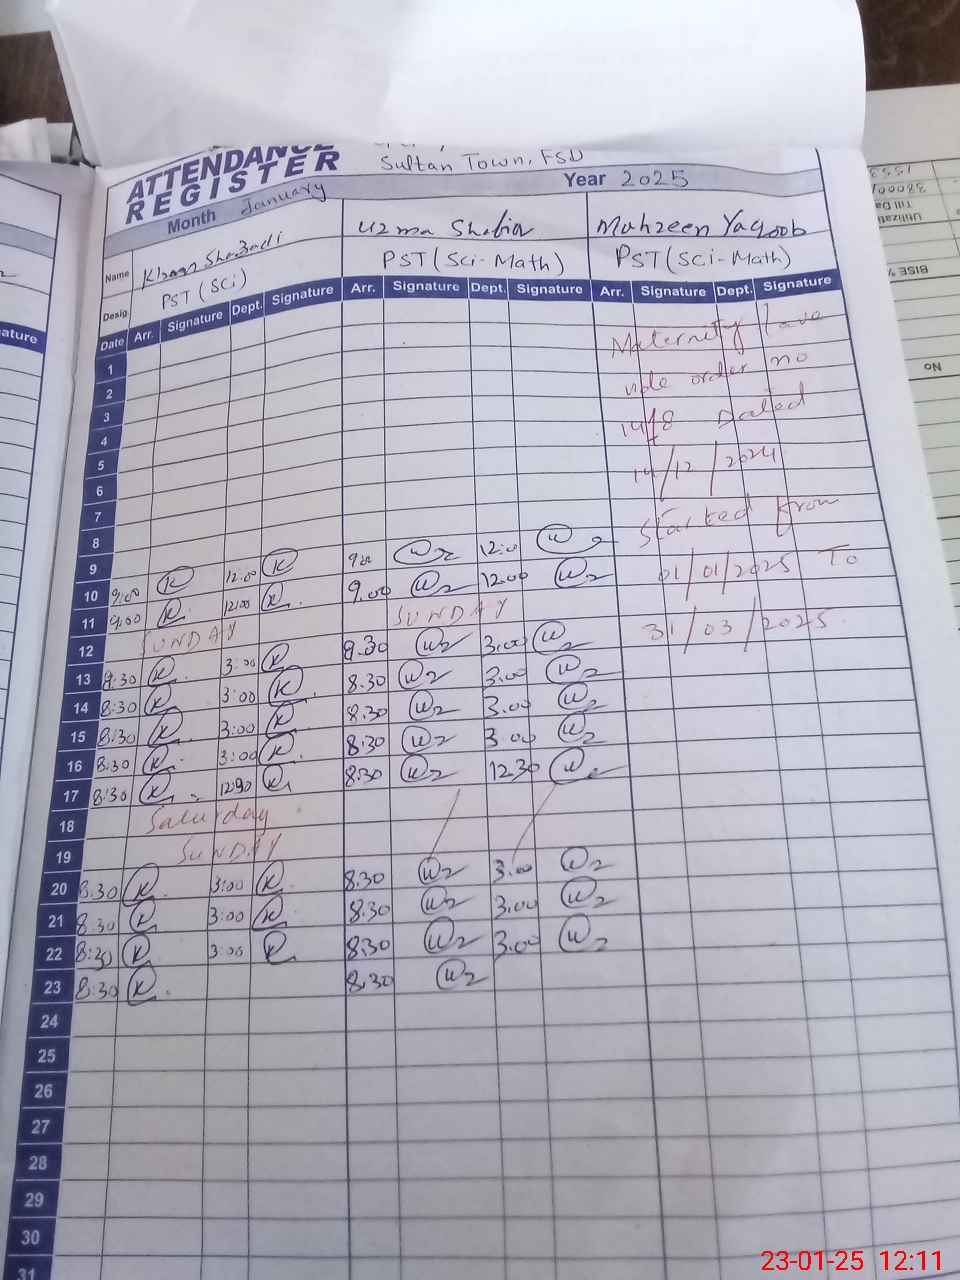 ATTENDANCE
REGISTER
Sultan Town, FSD
Month January
Year 2025
Name Shahzadi Uzma Shabir Mahzeen Yaqoob
Desig. PST (Sci) PST (Sci-Math) PST (Sci-Math)
Date Arr. Signature Dept. Signature Arr. Signature Dept. Signature Arr. Signature Dept. Signature
1 Maternity leave
2 vide order no
3 1478 Dated
4
5 14/12/2024
6
7 Started from
8
9 9:00 K 12:00 K 9:00 U2 12:00 U2 01/01/2025 To
10 9:00 K 12:00 K 9.00 U2 12.00 U2
11 SUNDAY SUNDAY 31/03/2025.
12
13 8:30 K 3:00 K 8.30 U2 3.00 U2
14 8:30 K 3:00 K 8.30 U2 3.00 U2
15 8:30 K 3:00 K 8.30 U2 3.00 U2
16 8:30 K 3:00 K 8.30 U2 3.00 U2
17 8:30 K 12:30 K 8.30 U2 12.30 U2
18 Saturday
19 SUNDAY
20 8:30 K 3:00 K 8.30 U2 3.00 U2
21 8:30 K 3:00 K 8.30 U2 3.00 U2
22 8:30 K 3:00 K 8.30 U2 3.00 U2
23 8:30 K 8.30 U2
24
25
26
27
28
29
30
31
ature
1553
38000/
Till Da
Utilizati
BISE
No
23-01-25 12:11